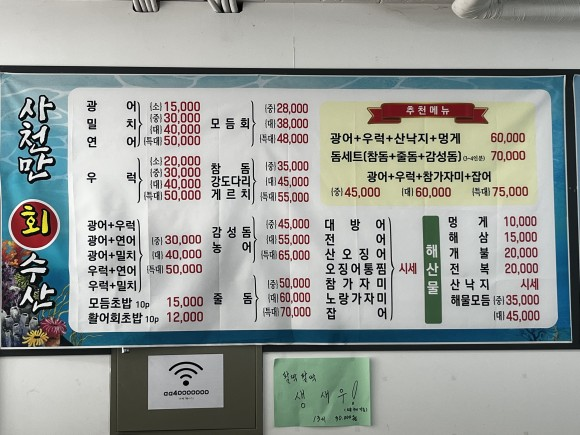 사천만 회 수산
광어
밀치
연어
(소) 15,000
(중) 30,000
(대) 40,000
(특대) 50,000
우럭
(소) 20,000
(중) 30,000
(대) 40,000
(특대) 50,000
광어+우럭
광어+연어
광어+밀치
우럭+연어
우럭+밀치
(중) 30,000
(대) 40,000
(특대) 50,000
모듬초밥 10p 15,000
활어회초밥 10p 12,000
모듬회
(중) 28,000
(대) 38,000
(특대) 48,000
참돔
강도다리
게르치
(중) 35,000
(대) 45,000
(특대) 55,000
감성돔
농어
(중) 45,000
(대) 55,000
(특대) 65,000
줄돔
(중) 50,000
(대) 60,000
(특대) 70,000
추천메뉴
광어+우럭+산낙지+멍게 60,000
돔세트(참돔+줄돔+감성돔) (3~4인분) 70,000
광어+우럭+참가자미+잡어
(중) 45,000 (대) 60,000 (특대) 75,000
대방어
전어
산오징어
오징어통찜
참가자미
노랑가자미
잡어
시세
해산물
멍게 10,000
해삼 15,000
개불 20,000
전복 20,000
산낙지 시세
해물모듬 (중) 35,000
(대) 45,000
생새우!